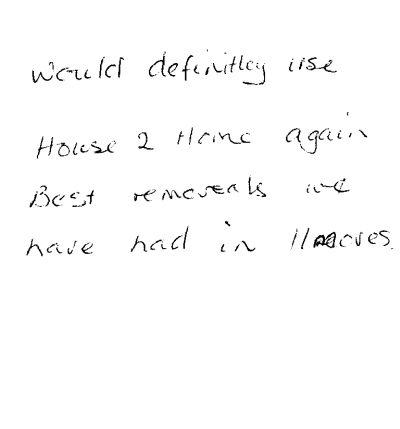 would definitley use
House 2 Home again
Best removals we
have had in 11 moves.